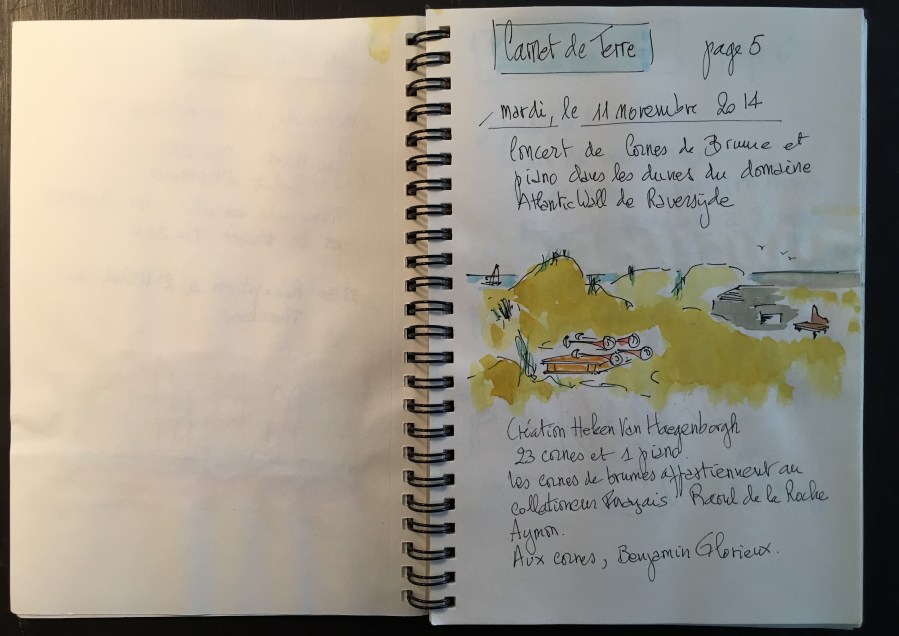 Carnet de Terre
page 5
mardi, le 11 novembre 2014
Concert de Cornes de Brume et
piano dans les dunes du domaine
AtlanticWall de Raversyde
Création Heleen Van Haegenborgh
23 cornes et 1 piano.
les cornes de brumes appartiennent au
collationeur Français Raoul de la Roche
Aymon.
Aux cornes, Benjamin Glorieux.